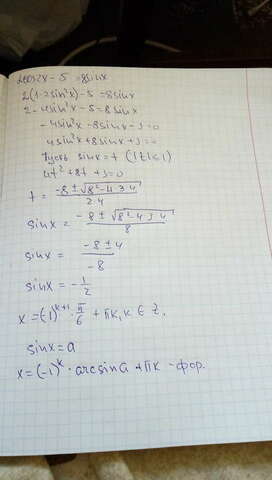 2cos2x - 5 = 8sinx
2(1-2sin²x) - 5 = 8sinx
2 - 4sin²x - 5 = 8sinx
-4sin²x - 8sinx - 3 = 0
4sin²x + 8sinx + 3 = 0
Пусть sinx = t (|t| ≤ 1)
4t² + 8t + 3 = 0
t = (-8 ± √(8² - 4·3·4)) / (2·4)
sinx = (-8 ± √(8² - 4·3·4)) / 8
sinx = (-8 ± 4) / -8
sinx = -1/2
x = (-1)^(k+1) · π/6 + πk, k ∈ Z.
sinx = a
x = (-1)^k · arcsin a + πk - фор.